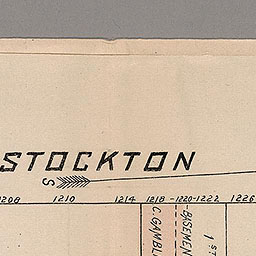 STOCKTON
S
1208 1210 1214 1218 -1220-1222 1226
C. GAMBL
BASEMEN
1ST